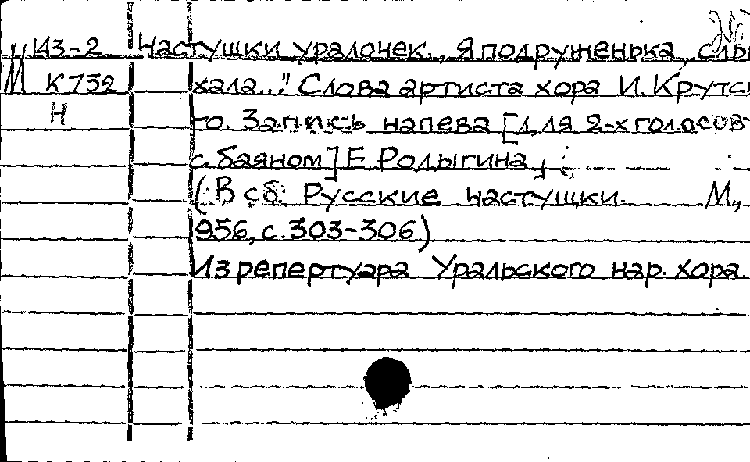 М 143-2 Частушки уралочек. „Я подруженька, слы
К 732 хала..." Слова артиста хора И. Крутс
Н го. Запись напева [для 2-х голосов
с баяном] Е. Родыгина.
(В сб: Русские частушки. М.,
956, с. 303-306)
Из репертуара Уральского нар. хора.